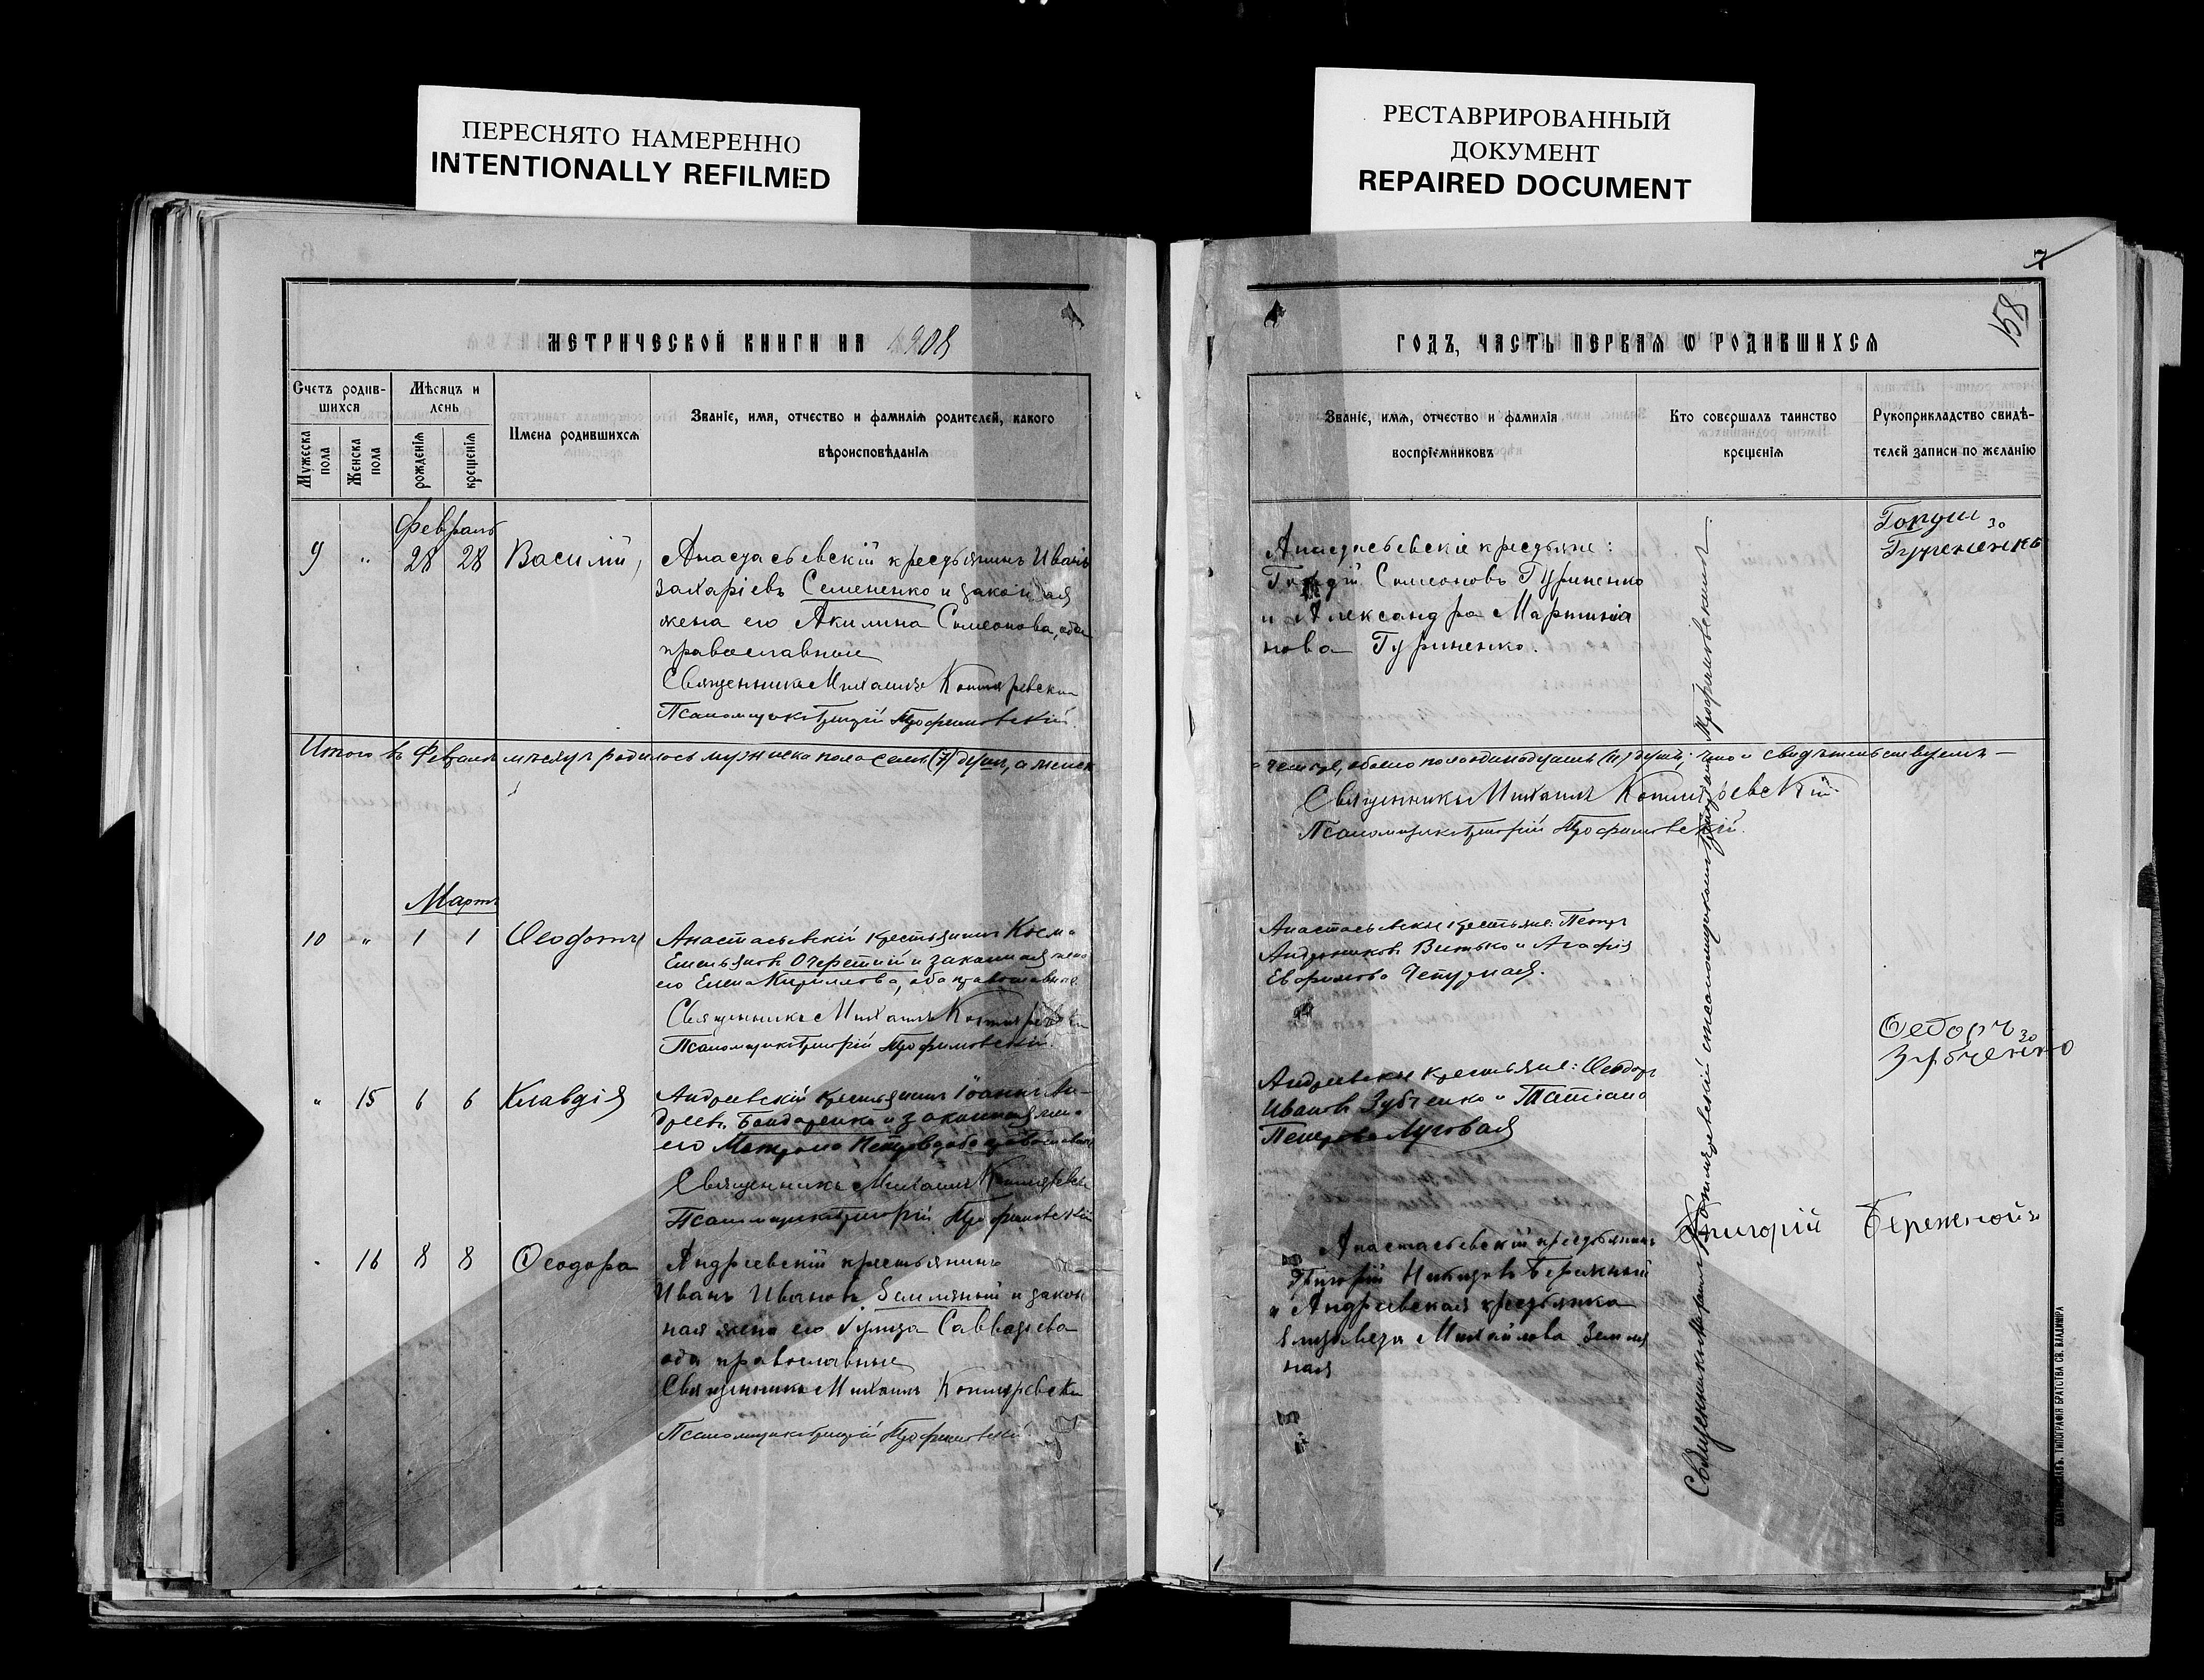 ПЕРЕСНЯТО НАМЕРЕННО
INTENTIONALLY REFILMED
РЕСТАВРИРОВАННЫЙ
ДОКУМЕНТ
REPAIRED DOCUMENT
МЕТРИЧЕСКОЙ КНИГИ НА 1908
Счетъ родив-
шихся
Мужеска пола
Женска пола
Мѣсяцъ и
день
рожденія
крещенія
Имена родившихся
Званіе, имя, отчество и фамилія родителей, какого
вѣроисповѣданія
Февраль
9 " 28 28 Василій
Анастасьевскій крестьянинъ Иванъ
Захаріевъ Семененко и законная
жена его Акилина Симеонова, оба
православные
Священникъ Михаилъ Котляревскій
Псаломщикъ Григорій Трофимовскій.
Итого въ Февралѣ мѣсяцѣ родилось мужеска пола семь (7) душъ, а женск
Мартъ
10 " 1 1 Ѳеодотъ
Анастасьевскій крестьянинъ Косма
Емельяновъ Очеретній и законная жена
его Елена Кириллова, оба православные.
Священникъ Михаилъ Котляревскій
Псаломщикъ Григорій Трофимовскій.
" 15 6 6 Клавдія
Андреевскій крестьянинъ Іоаннъ Ан-
дреевъ Бондаренко и законная жена
его Матрона Петрова, оба православные
Священникъ Михаилъ Котляревскій
Псаломщикъ Григорій Трофимовскій
" 16 8 8 Ѳеодора
Андреевскій крестьянинъ
Иванъ Ивановъ Земляный и закон
ная жена его Савватіева
оба православные
Священникъ Михаилъ Котляревскій
Псаломщикъ Григорій Трофимовскій
7
158
ГОДЪ, ЧАСТЬ ПЕРВАЯ Ѡ РОДИВШИХСЯ
Званіе, имя, отчество и фамилія
воспріемниковъ
Кто совершалъ таинство
крещенія
Рукоприкладство свидѣ-
телей записи по желанію
Анастасьевскіе крестьяне:
Симеоновъ Гуриненко
и Александра Мартинія
нова Гуриненко.
четыре, обоего пола одинадцать (11) душъ; что и свидѣтельствуемъ
Священникъ Михаилъ Котляревскій
Псаломщикъ Григорій Трофимовскій.
Анастасьевскіе крестьяне: Петръ
Андрониковъ Витько и Агафія
Евфимова Чепурная.
Ѳедоръ
Зубченко
Андреевскіе крестьяне: Ѳеодоръ
Ивановъ Зубченко и Татіана
Петрова Луговая
Григорій Бережной
Анастасьевскій крестьянинъ
Григорій Никитовъ Бережный
и Андреевская крестьянка
Елизавета Михайлова Земля
ная
Священникъ Михаилъ Котляревскій съ псаломщикомъ Григоріемъ Трофимовскимъ
ТИПОГРАФІЯ БРАТСТВА СВ. ВЛАДИМІРА